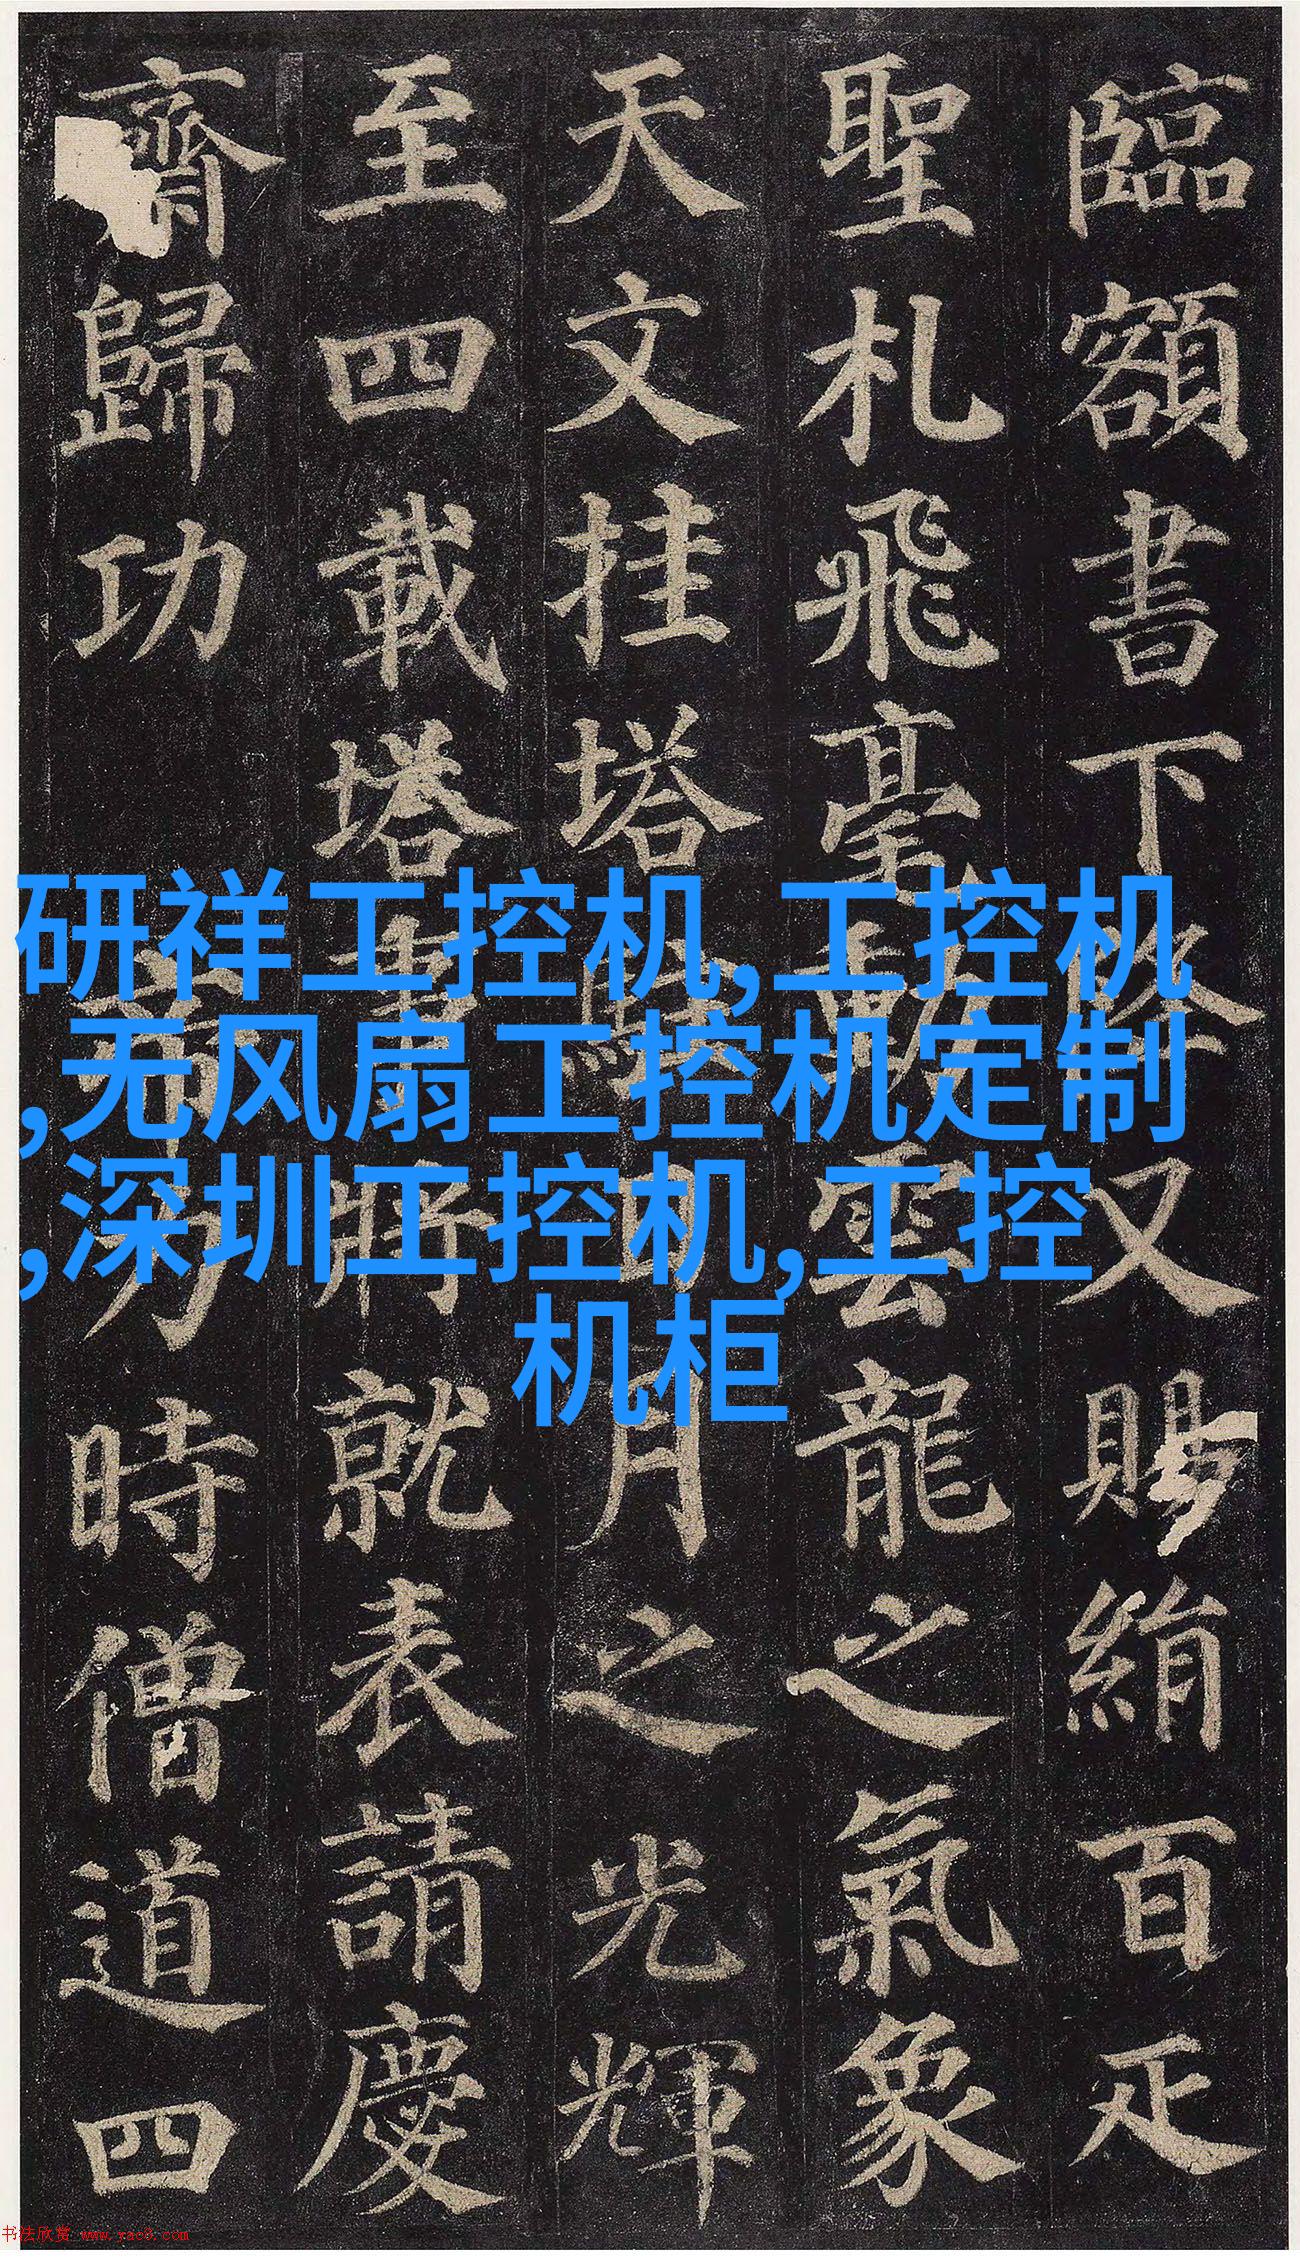 臨額書下降又賜絹百疋
聖札飛毫動雲龍之氣象
天文挂塔駐日月之光輝
至四載塔事將就表請慶
齋歸功帝力時僧道四
研祥工控机,工控机
,无风扇工控机定制
,深圳工控机,工控
机柜
书法欣赏 www.yac8.com